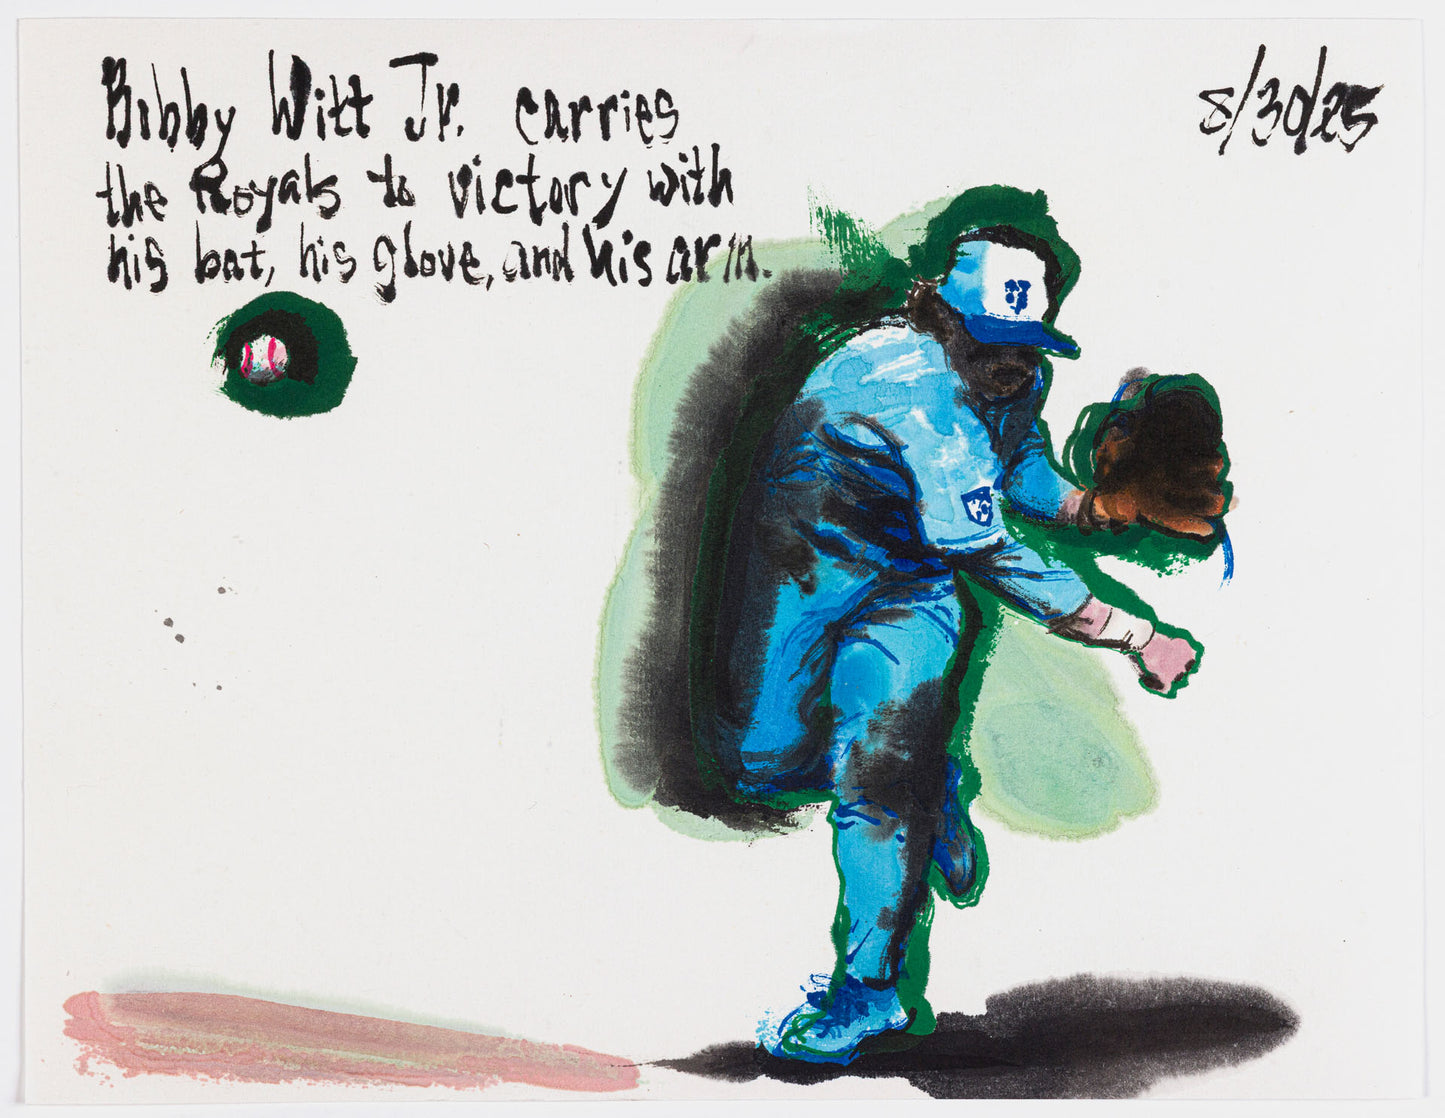 Bobby Witt Jr. carries
the Royals to victory with
his bat, his glove, and his arm.
8/30/25